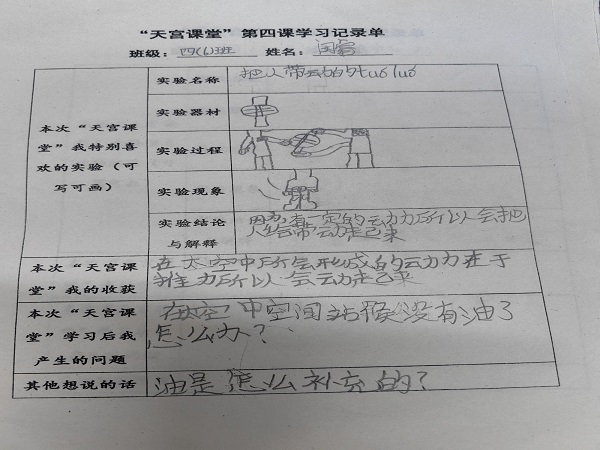 “天宫课堂”第四课学习记录单
班级：四(6)班 姓名：闫睿
本次“天宫课堂”我特别喜欢的实验（可写可画）
实验名称 把人带动的tuó luó
实验器材
实验过程
实验现象
实验结论与解释 因为有一定的动力所以会把
人给带动走起来
本次“天宫课堂”我的收获 在太空中所会形成的动力在于
推力所以会动走起来
本次“天宫课堂”学习后我产生的问题 在太空中空间站假没有油了
怎么办？
其他想说的话 油是怎么补充的？